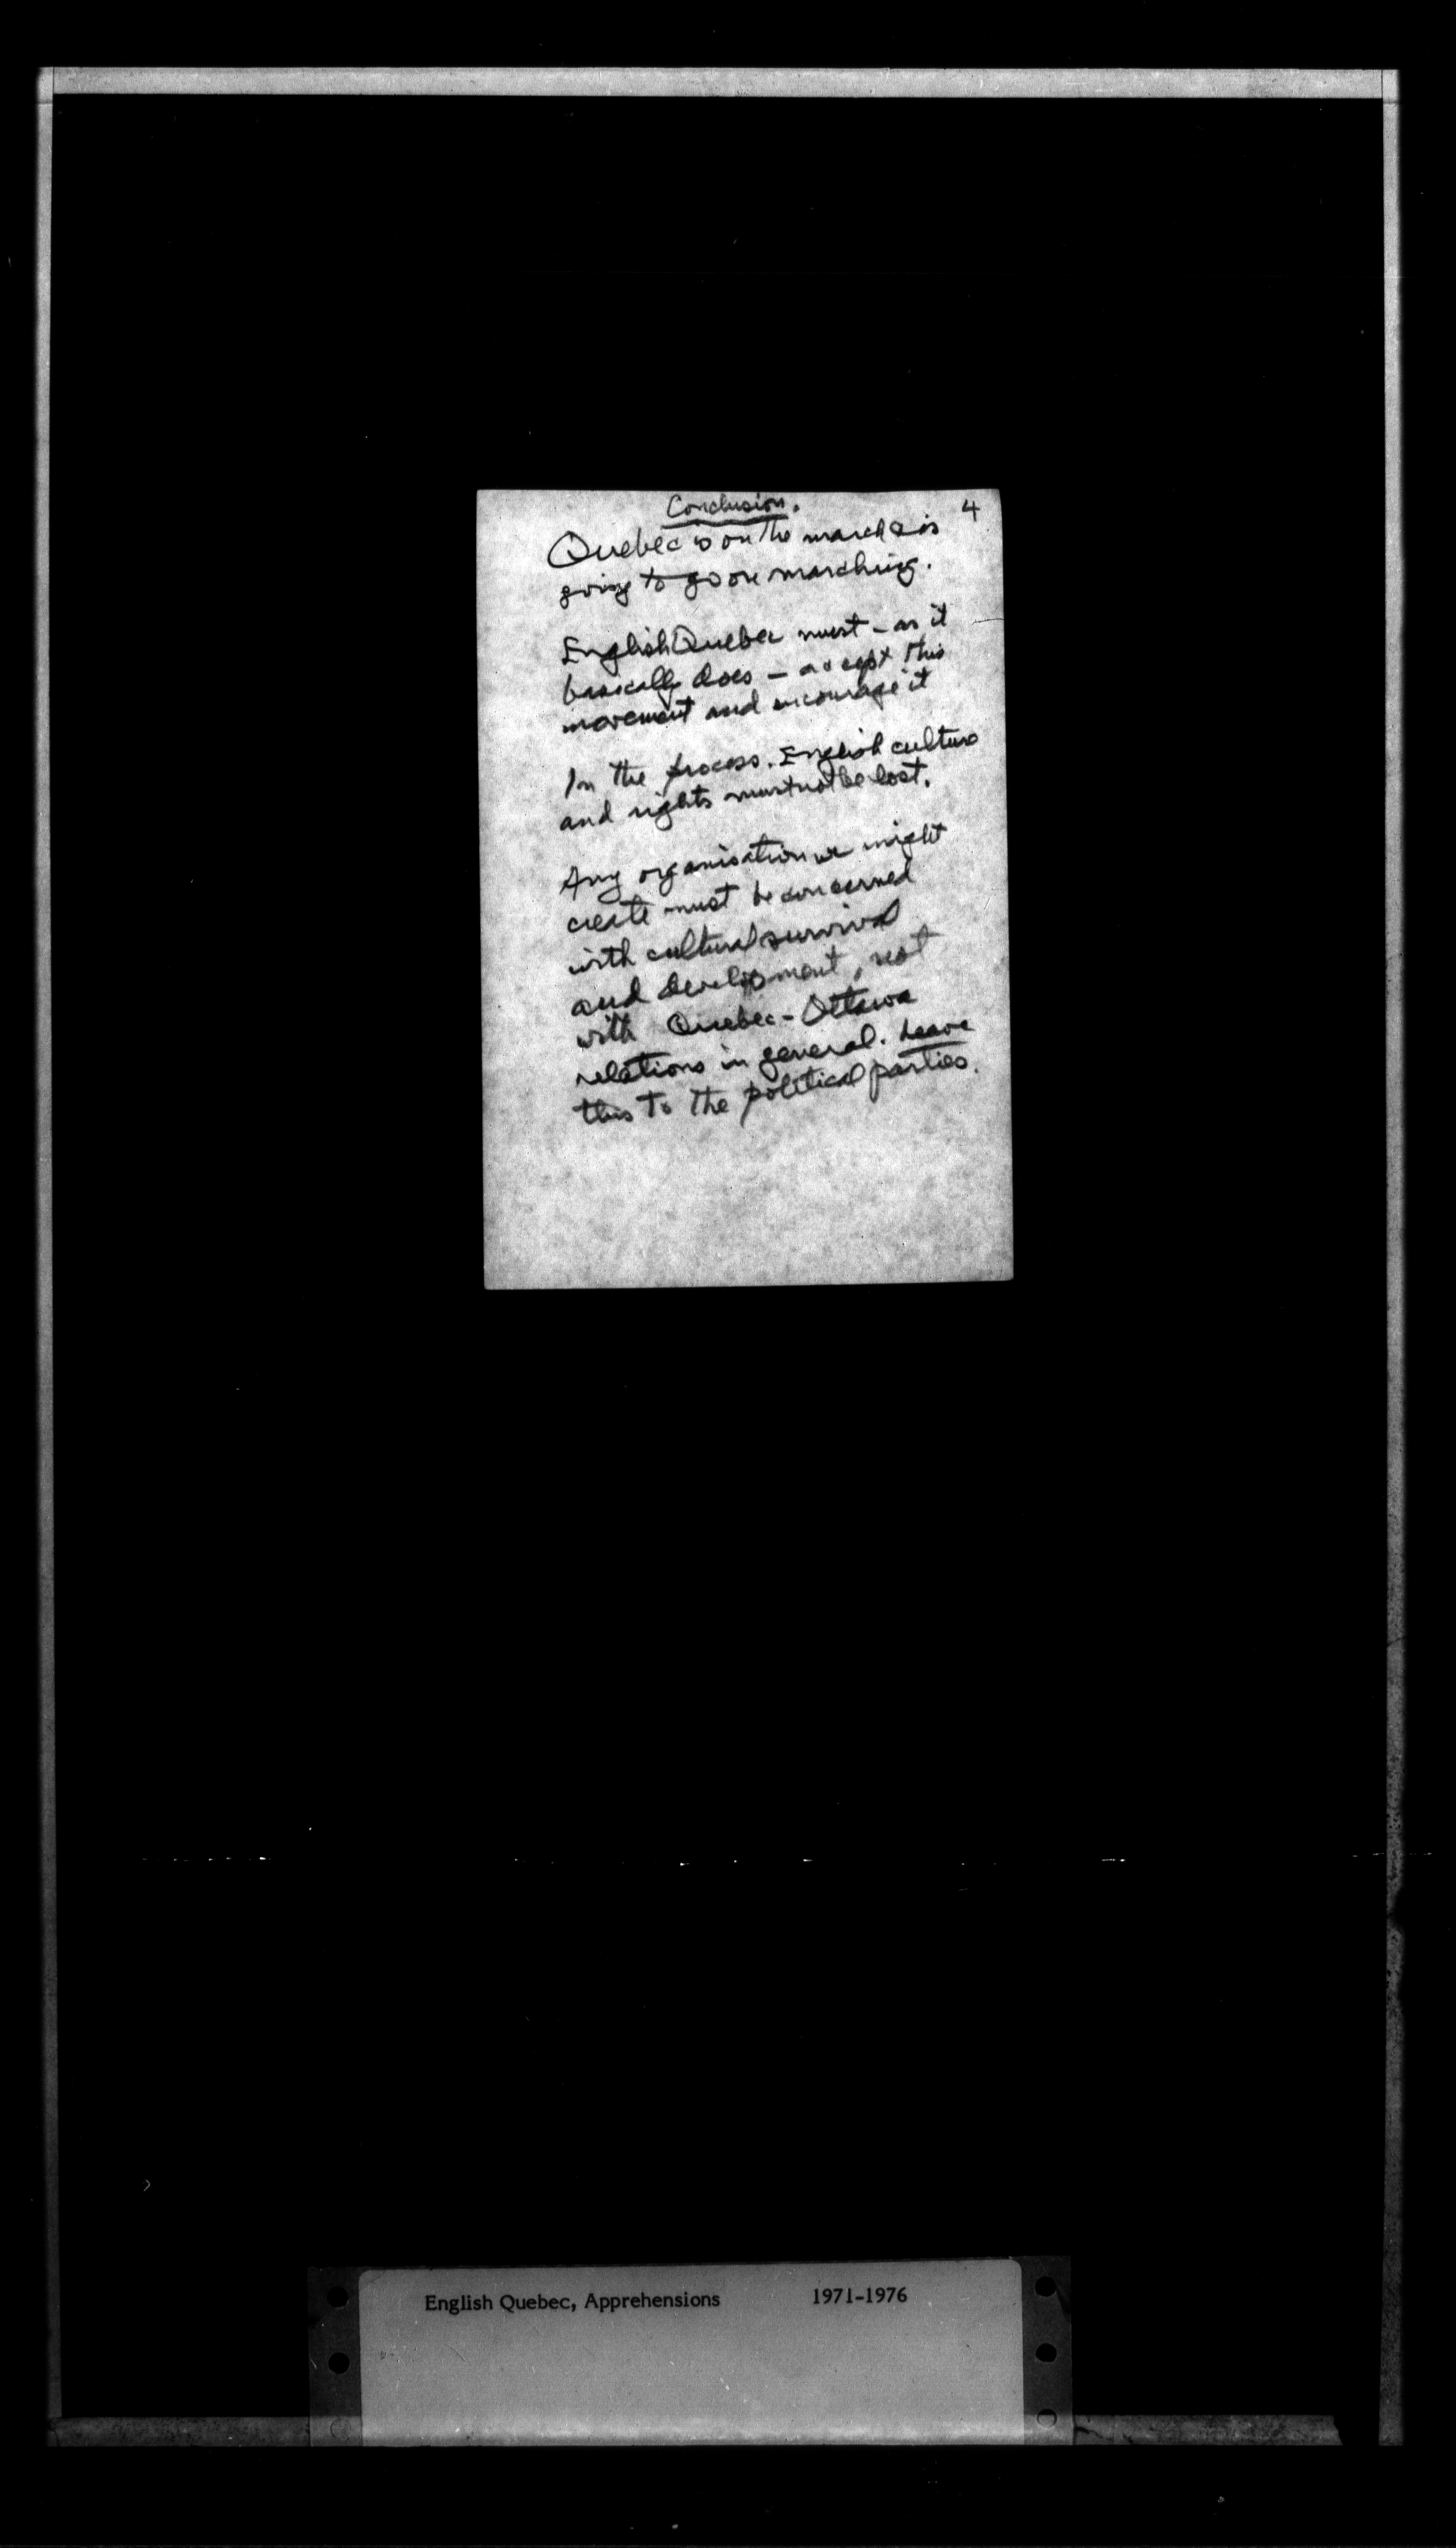 Conclusion.
4
Quebec is on the march & is
going to go on marching.
English Quebec must – as it
basically does – accept this
movement and encourage it
In the process, English culture
and rights must not be lost.
Any organisation we might
create must be concerned
with cultural survival
and development, not
with Quebec - Ottawa
relations in general. Leave
this to the political parties.
English Quebec, Apprehensions 1971-1976